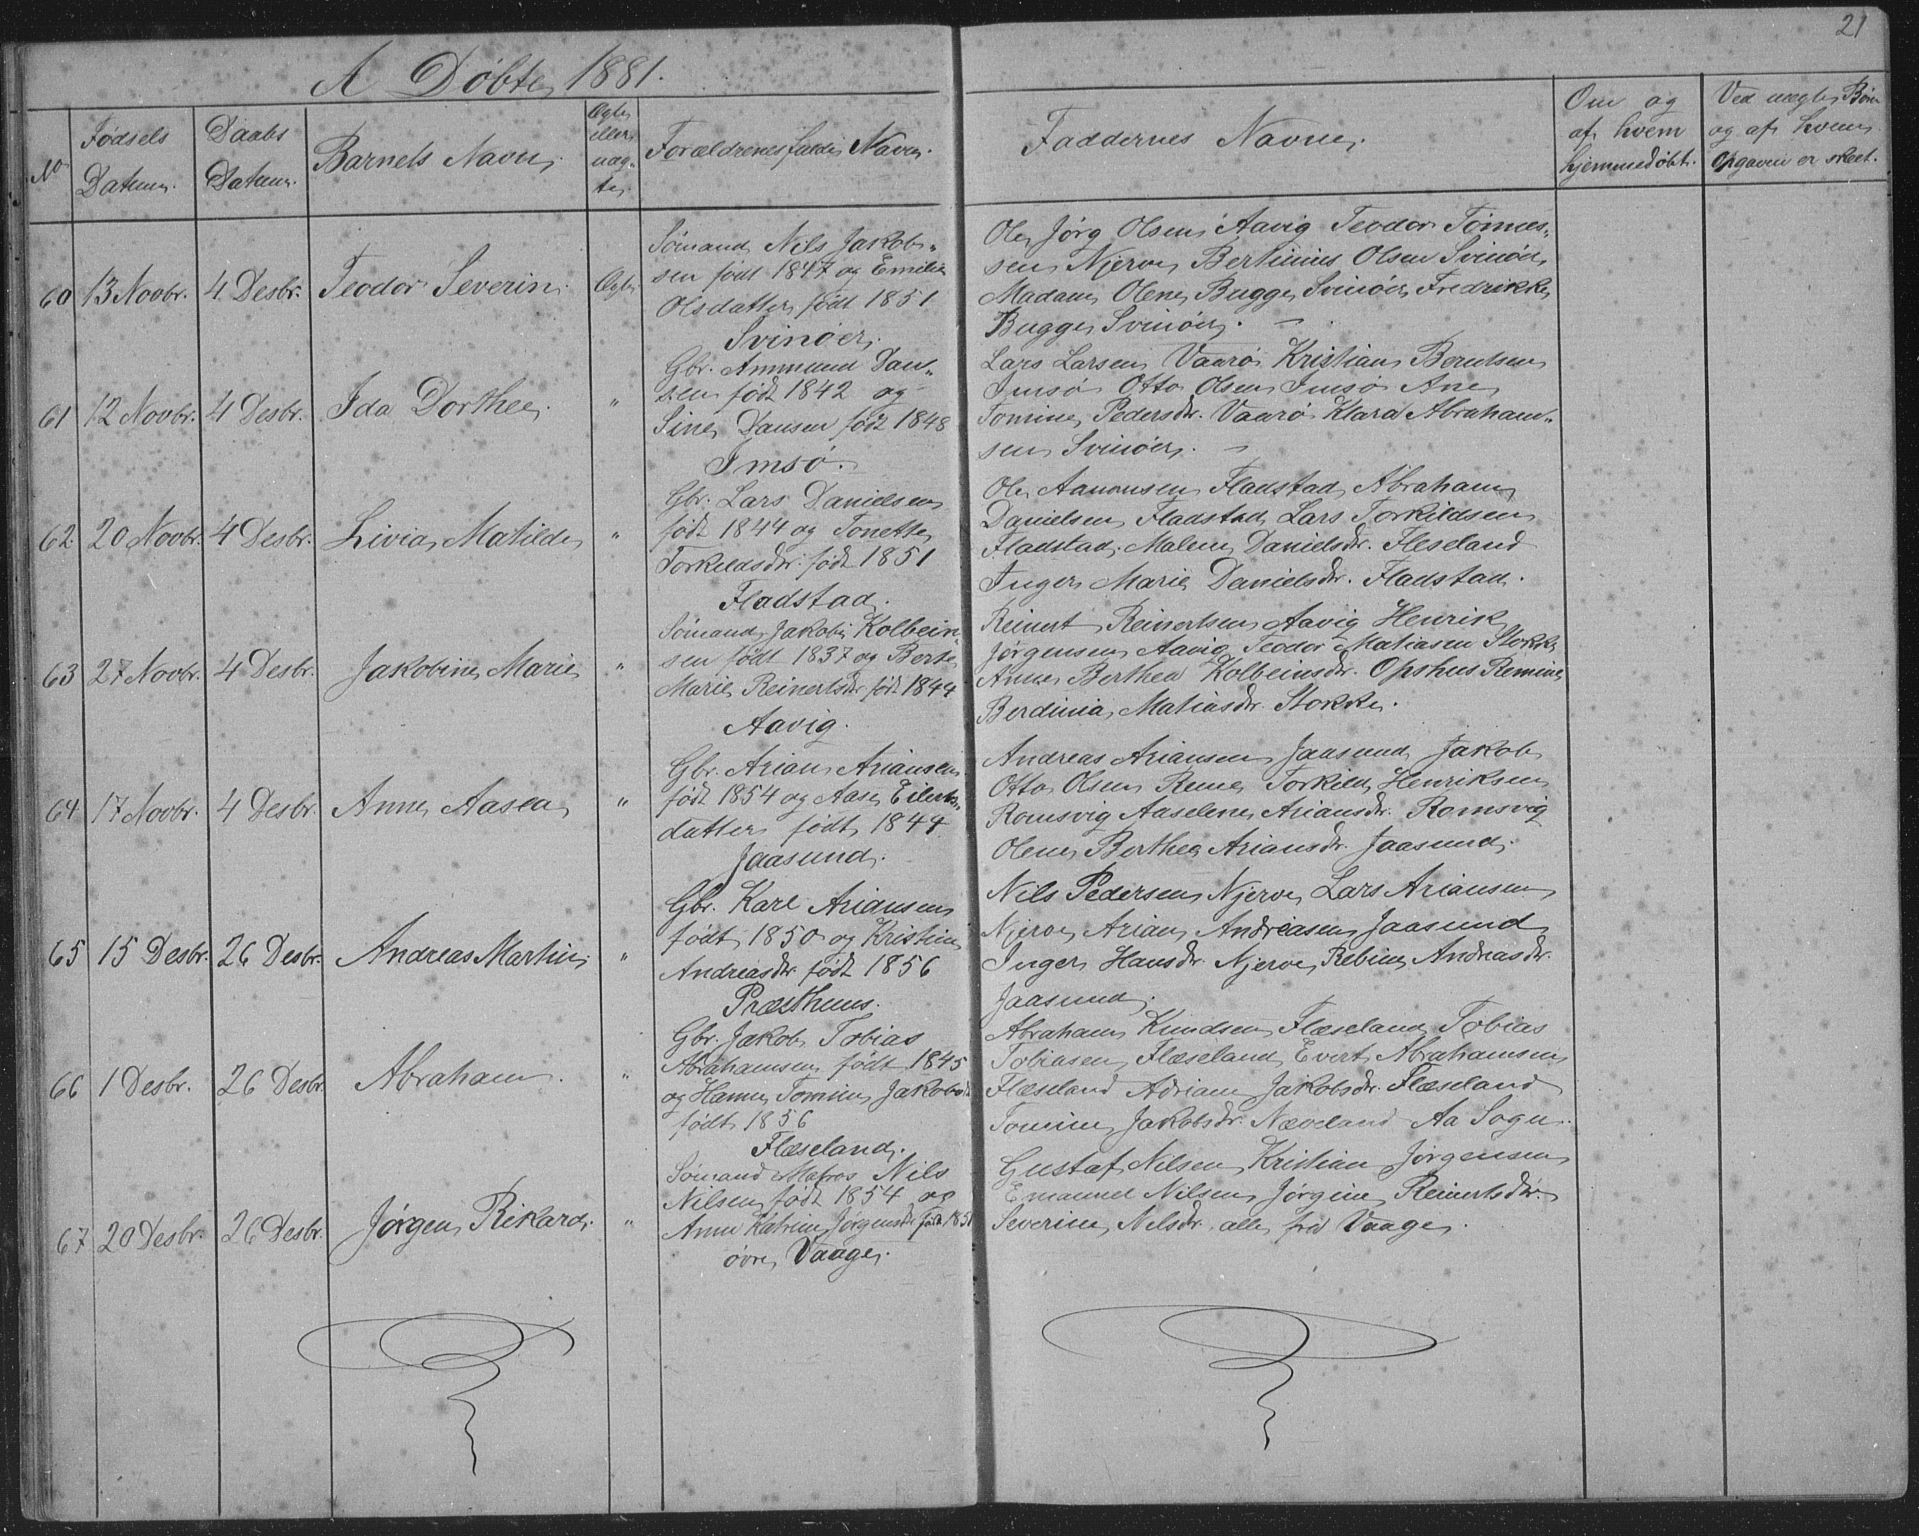 21
A Döbte, 1881.
No
Fødsels Datum.
Daabs Datum.
Barnets Navn,
Ægte eller uægte,
Forældrenes fulde Navn.
Faddernes Navne,
Om og af hvem hjemmedøbt.
Ved uægte Børn og af hvem Opgaven er skeet.
60 13 Novbr. 4 Desbr. Teodor Severin. Ægte
Sömand Nils Jakob-
sen født 1847 og Emilie
Olsdatter født 1851
Svinöer.
Ole Jörg Olsen Aavig Teodor Tönnes-
sen Njerve Bertinius Olsen Svinöer,
Madam Olene Bugge, Svinöer, Fredrikke,
Bugge, Svinöer. —
61 12 Novbr. 4 Desbr. Ida Dorthea. "
Gbr. Ammund Dan-
sen født 1842 og
Sine Dansen født 1848
Imsö.
Lars Larsen Vaarö Kristian Berntsen
Imsö Otto Olsen Imsö Ane
Tomine Pedersdr. Vaarö Klara Abraham-
sen Svinöer. —
62. 20 Novbr. 4 Desbr. Livia Matilde "
Gbr. Lars Danielsen
født 1844 og Tonette
Torkildsdr. født 1851
Fladstad.
Ole Aanonsen Fladstad, Abraham
Danielsen Fladstad, Lars Torkildsen
Fladstad. Malene Danielsdr. Fleseland
Inger Marie Danielsdr. Fladstad.
63 27 Novbr. 4 Desbr. Jakobine Marie "
Sömand, Jakob Kolbein-
sen født 1837 og Berte
Marie Reinertsdr. født 1844
Aavig.
Reinert Reinertsen Aavig Henrik
Jørgensen Aavig Teodor Matiasen Stokke
Anne Berthea Kolbeinsdr. Opshus Remine,
Berdinia, Matiasdr. Stokke.
64 17 Novbr. 4 Desbr. Anne Aasea, "
Gbr. Arian Ariansen
født 1854 og Aase Eilerts-
datter født 1844.
Jaasund.
Andreas Ariansen Jaasund Jakob
Otto Olsen Reme Torkild Henriksen
Romsvig Aaselene Ariansdr. Romsvig
Olene Berthea Ariansdr. Jaasund.
65 15 Desbr. 26 Desbr. Andreas Martin "
Gbr. Karl Ariansen
født 1850 og Kristine
Andreasdr. født 1856
Præsthuus.
Nils Pedersen Njerve, Lars Ariansen
Njerve, Arian Andreasen Jaasund
Inger Hansdr. Njerve, Rebine Andreasdr.
Jaasund.
66 1 Desbr. 26 Desbr. Abraham. "
Gbr. Jakob Tobias
Abrahamsen født 1845
og Hanne Tomine Jakobsdr
født 1856
Flæseland.
Abraham Knudsen Flæseland Tobias
Tobiasen Flæseland, Evert Abrahamsen
Flæseland Adriane Jakobsdr. Flæseland
Tomine Jakobsdr. Næveland Aa Sogn.
67 20 Desbr. 26 Desbr. Jörgen Rikard. "
Sömand Matros Nils
Nilsen født 1854 og
Anne Katrine Jörgensdr. født 1851
övre Vaage.
Gustaf Nilsen, Kristian Jörgensen
Emanuel Nilsen, Jörgine Reinertsdr.
Severine Nilsdr. alle fra Vaage.